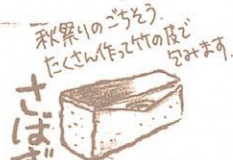 秋祭りのごちそう.
たくさん作って竹の皮で
包みます.
さばず